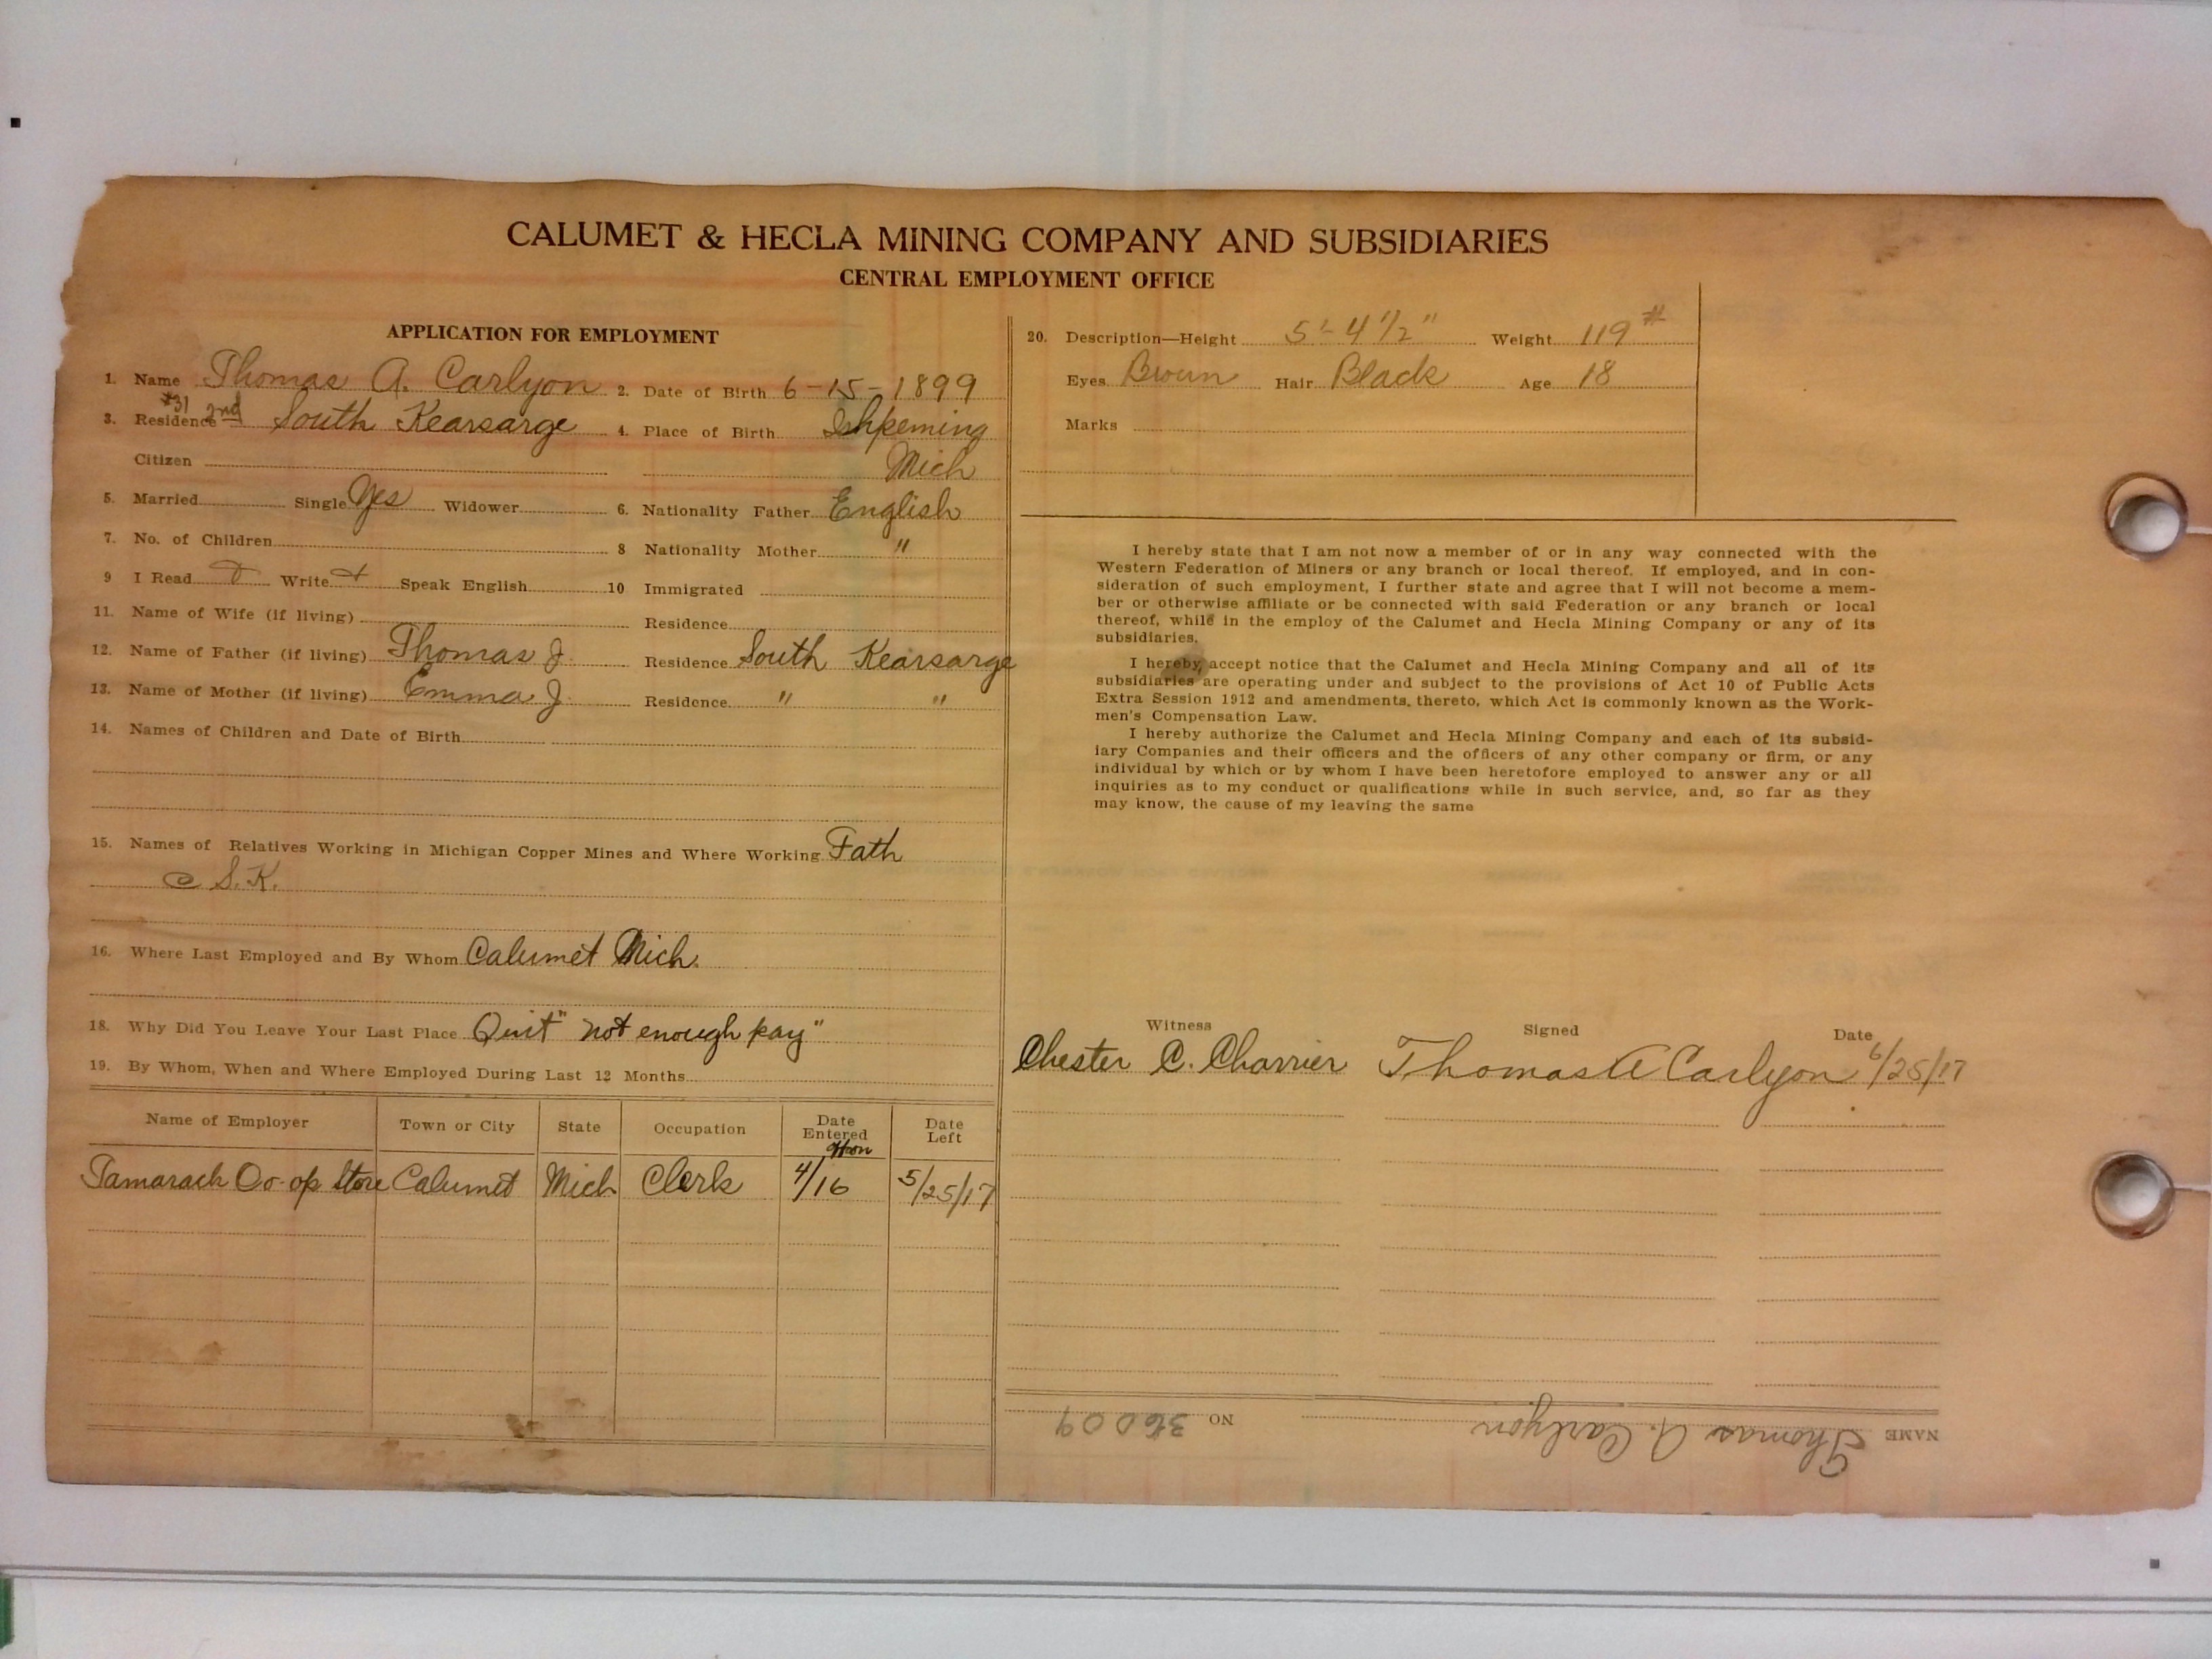 CALUMET & HECLA MINING COMPANY AND SUBSIDIARIES
CENTRAL EMPLOYMENT OFFICE
APPLICATION FOR EMPLOYMENT
1. Name Thomas A. Carlyon 2. Date of Birth 6-15-1899
#31 2nd
3. Residence South Kearsarge 4. Place of Birth Ishpeming
Citizen Mich
5. Married Single Yes Widower 6. Nationality Father English
7. No. of Children 8 Nationality Mother "
9 I Read Write Speak English 10 Immigrated
11. Name of Wife (if living) Residence
12. Name of Father (if living) Thomas J. Residence South Kearsarge
13. Name of Mother (if living) Emma J. Residence " "
14. Names of Children and Date of Birth
15. Names of Relatives Working in Michigan Copper Mines and Where Working Fath
S.K.
16. Where Last Employed and By Whom Calumet Mich.
18. Why Did You Leave Your Last Place Quit "not enough pay"
19. By Whom, When and Where Employed During Last 12 Months
Name of Employer Town or City State Occupation Date Entered Date Left
Tamarack Co-op Store Calumet Mich Clerk 4/16 5/25/17
20. Description—Height 5'-4 1/2" Weight 119#
Eyes Brown Hair Black Age 18
Marks
I hereby state that I am not now a member of or in any way connected with the
Western Federation of Miners or any branch or local thereof. If employed, and in con-
sideration of such employment, I further state and agree that I will not become a mem-
ber or otherwise affiliate or be connected with said Federation or any branch or local
thereof, while in the employ of the Calumet and Hecla Mining Company or any of its
subsidiaries.
I hereby accept notice that the Calumet and Hecla Mining Company and all of its
subsidiaries are operating under and subject to the provisions of Act 10 of Public Acts
Extra Session 1912 and amendments, thereto, which Act is commonly known as the Work-
men's Compensation Law.
I hereby authorize the Calumet and Hecla Mining Company and each of its subsid-
iary Companies and their officers and the officers of any other company or firm, or any
individual by which or by whom I have been heretofore employed to answer any or all
inquiries as to my conduct or qualifications while in such service, and, so far as they
may know, the cause of my leaving the same
Witness Signed Date
Chester C. Charrier Thomas A Carlyon 6/25/17
NAME Thomas A. Carlyon NO 36009